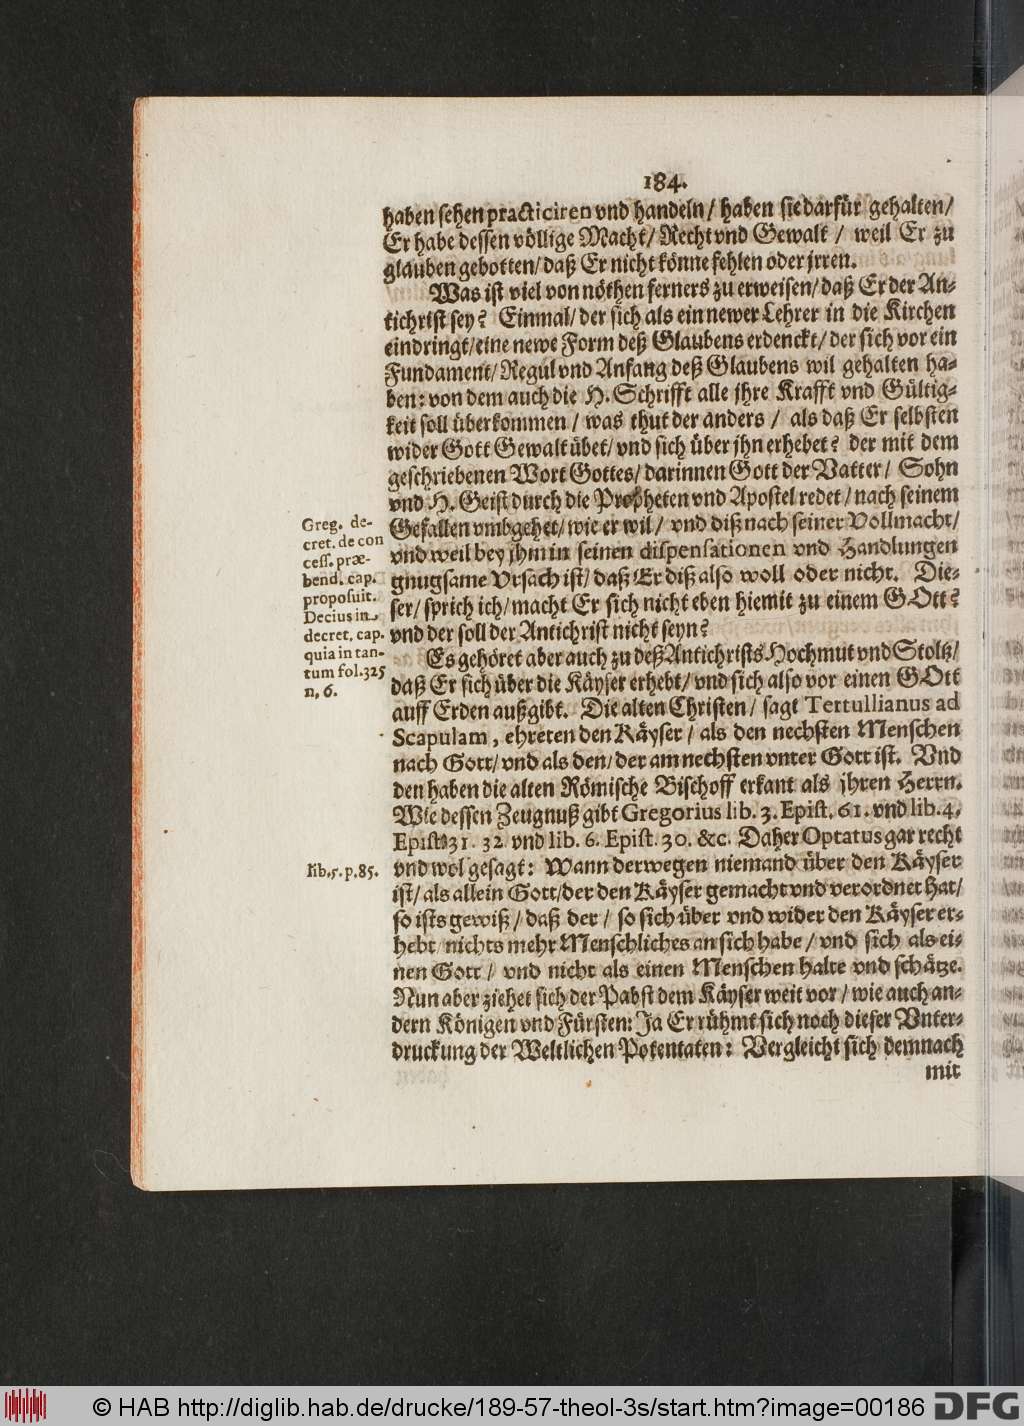 184.
haben sehen practiciren vnd handeln / haben sie darfür gehalten /
Er habe dessen völlige Macht / Recht vnd Gewalt / weil Er zu
glauben gebotten / daß Er nicht könne fehlen oder jrren.
Was ist viel von nöthen ferners zu erweisen / daß Er der An-
tichrist sey? Einmal / der sich als ein newer Lehrer in die Kirchen
eindringt / eine newe Form deß Glaubens erdenckt / der sich vor ein
Fundament / Regul vnd Anfang deß Glaubens wil gehalten ha-
ben: von dem auch die H. Schrifft alle jhre Krafft vnd Gültig-
keit soll überkommen / was thut der anders / als daß Er selbsten
wider Gott Gewalt übet / vnd sich über jhn erhebet? der mit dem
geschriebenen Wort Gottes / darinnen Gott der Vatter / Sohn
vnd H. Geist durch die Propheten vnd Apostel redet / nach seinem
Gefallen vmbgehet / wie er wil / vnd diß nach seiner Vollmacht /
vnd weil bey jhm in seinen dispensationen vnd Handlungen
gnugsame Vrsach ist / daß Er diß also woll oder nicht. Die-
ser / sprich ich / macht Er sich nicht eben hiemit zu einem GOtt?
vnd der soll der Antichrist nicht seyn?
Greg. de-
cret. de con
cess. præ-
bend. cap.
proposuit.
Decius in
decret. cap.
quia in tan-
tum fol. 325
n. 6.
Es gehöret aber auch zu deß Antichrists Hochmut vnd Stoltz /
daß Er sich über die Käyser erhebt / vnd sich also vor einen GOtt
auff Erden außgibt. Die alten Christen / sagt Tertullianus ad
Scapulam, ehreten den Käyser / als den nechsten Menschen
nach Gott / vnd als den / der am nechsten vnter Gott ist. Vnd
den haben die alten Römische Bischoff erkant als jhren Herrn.
Wie dessen Zeugnuß gibt Gregorius lib. 3. Epist. 61. vnd lib. 4.
Epist. 31. 32. vnd lib. 6. Epist. 30. &c. Daher Optatus gar recht
vnd wol gesagt: Wann derwegen niemand über den Käyser
ist / als allein Gott / der den Käyser gemacht vnd verordnet hat /
so ists gewiß / daß der / so sich über vnd wider den Käyser er-
hebt / nichts mehr Menschliches an sich habe / vnd sich als ei-
nen Gott / vnd nicht als einen Menschen halte vnd schätze.
Nun aber ziehet sich der Pabst dem Käyser weit vor / wie auch an-
dern Königen vnd Fürsten: Ja Er rühmt sich noch dieser Vnter-
druckung der Weltlichen Potentaten: Vergleicht sich demnach
mit
lib. 5. p. 85.
© HAB http://diglib.hab.de/drucke/189-57-theol-3s/start.htm?image=00186
DFG